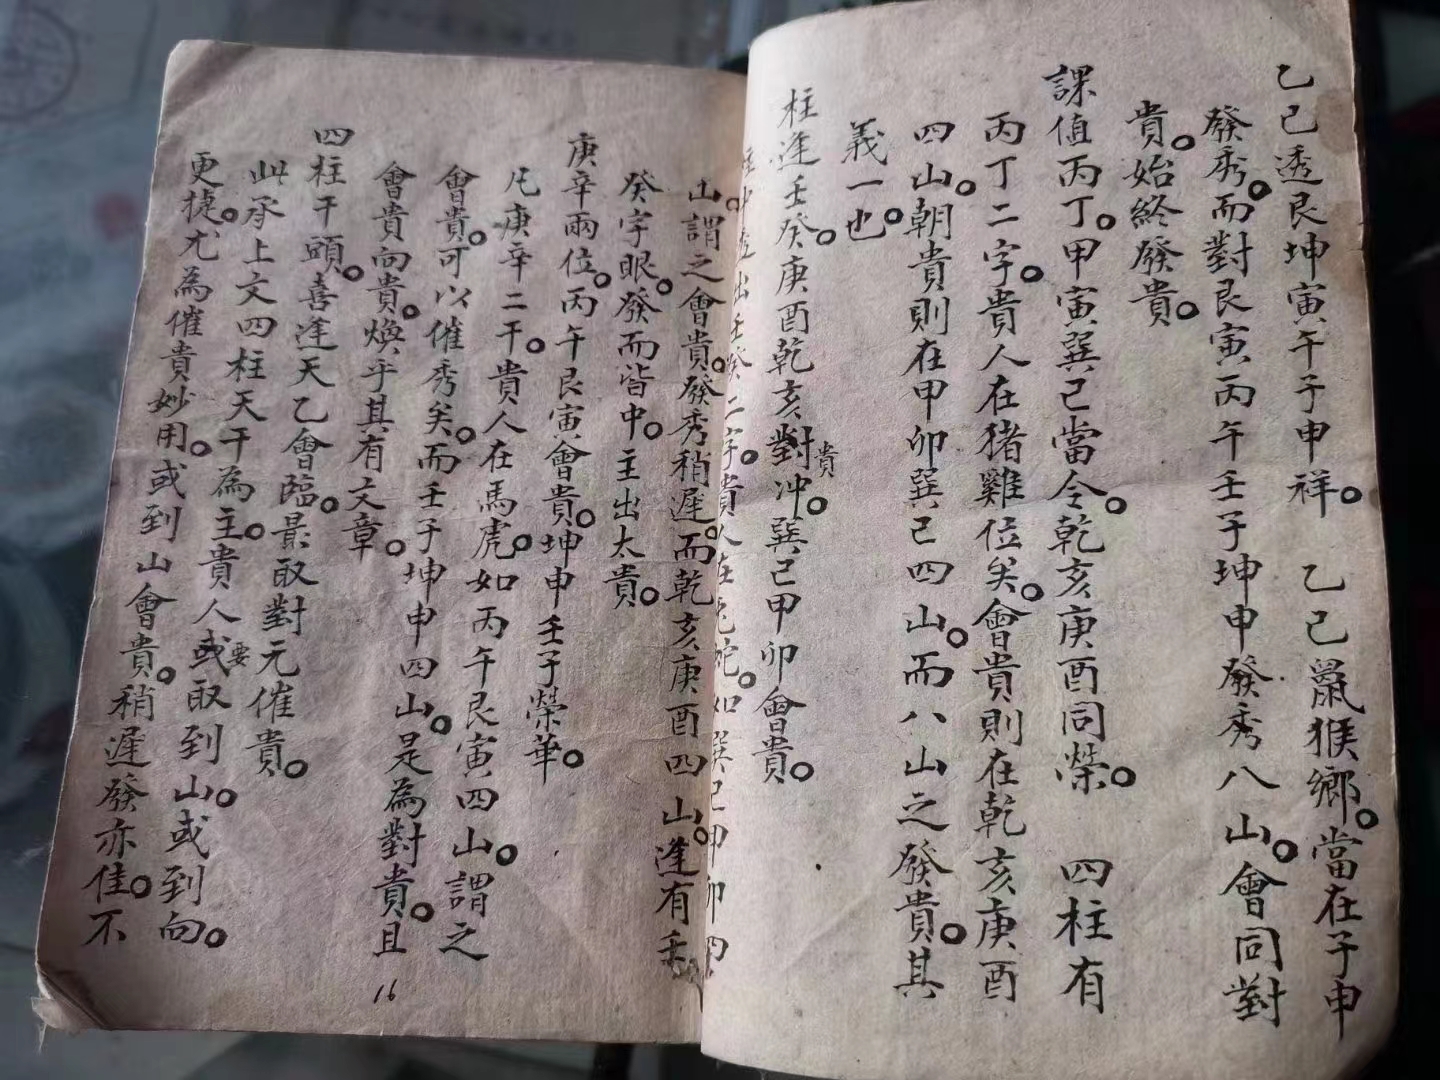 乙己透艮坤寅午子申祥。乙己鼠猴鄉。當在子申
發秀。而對艮寅丙午壬子坤申發秀八山。會同對
貴。始終發貴。
課值丙丁。甲寅巽己當令。乾亥庚酉同榮。四柱有
丙丁二字。貴人在猪雞位矣。會貴則在乾亥庚酉
四山。朝貴則在甲卯巽己四山。而八山之發貴。其
義一也。
柱逢壬癸。庚酉乾亥對貴冲。巽己甲卯會貴。
出壬癸二字。貴人在兔蛇。如巽己甲卯四
山。謂之會貴。發秀稍遲。而乾亥庚酉四山。逢有壬
癸字眼。發而皆中。主出太貴。
庚辛兩位。丙午艮寅會貴。坤申壬子榮華。
凡庚辛二干。貴人在馬虎。如丙午艮寅四山。謂之
會貴。可以催秀矣。而壬子坤申四山。是為對貴。且
會貴向貴。煥乎其有文章。
四柱干頭。喜逢天乙會臨。最取對元催貴。
此承上文四柱天干為主。貴人或要取到山。或到向。
更捷。尤為催貴妙用。或到山會貴。稍遲發亦佳。不
16